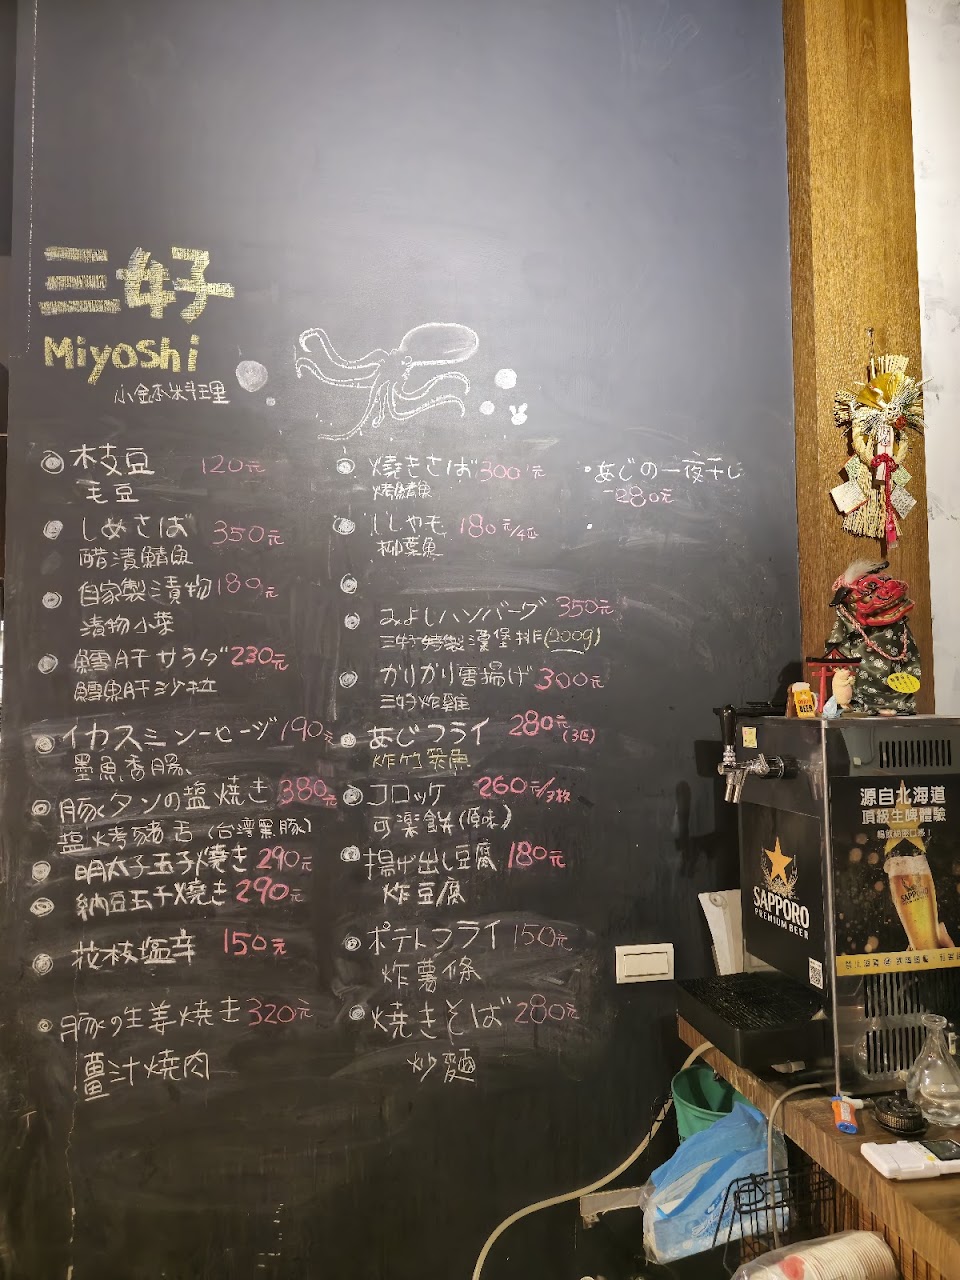 三好
Miyoshi
小金本料理
木支豆 120元
毛豆
しめさば 350元
醋漬鯖魚
自家製漬物 180元
漬物小菜
鱈肝サラダ 230元
鱈魚肝沙拉
イカスミソーセージ 190元
墨魚香腸
豚タンの塩焼き 380元
塩烤豬舌(台灣黑豚)
明太子玉子焼き 290元
納豆玉子焼き 290元
花枝塩辛 150元
豚の生姜焼き 320元
薑汁燒肉
焼きさば 300元
烤鯖魚
ししゃも 180元/4匹
柳葉魚
みよしハンバーグ 350元
三好特製漢堡排(200g)
かりかり唐揚げ 300元
三好炸雞
あじフライ 280元(3匹)
炸竹筴魚
コロッケ 260元/3枚
可楽餅(原味)
揚げ出し豆腐 180元
炸豆腐
ポテトフライ 150元
炸薯條
焼きそば 280元
炒麵
あじの一夜干し
280元
源自北海道
頂級生啤體驗
SAPPORO
PREMIUM BEER